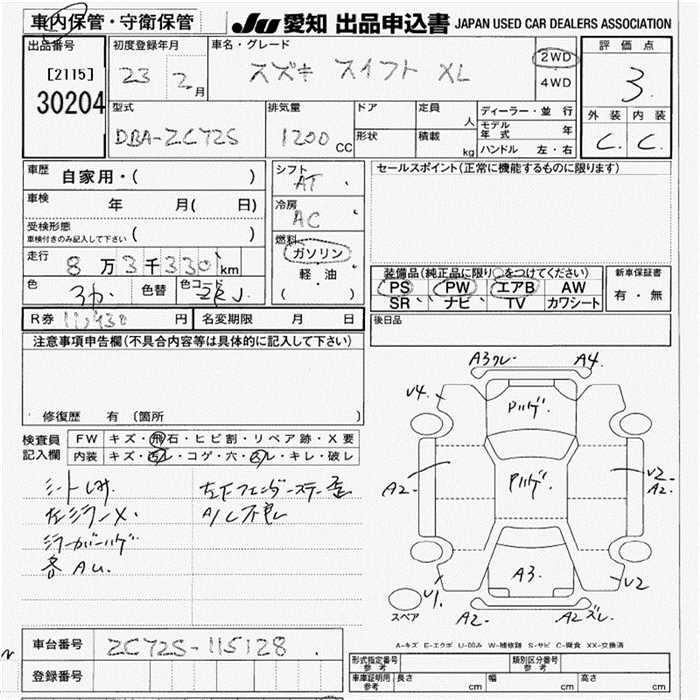 車内保管・守衛保管
JU 愛知 出品申込書 JAPAN USED CAR DEALERS ASSOCIATION
出品番号
[2115]
30204
初度登録年月
23 2月
車名・グレード
スズキ スイフト XL
2WD
4WD
評価点
3
外装 内装
C. C.
型式
DBA-ZC72S
排気量
1200 CC
ドア
形状
定員 人
積載 kg
ディーラー・並行
モデル年式 年
ハンドル 左・右
車歴 自家用・( )
車検 年 月( 日)
受検形態
車検付きのみ記入して下さい ( )
走行 8万3千330km
色 色替 色コード
シフト
AT
冷房
AC
燃料
ガソリン
軽・油
( )
セールスポイント(正常に機能するものに限ります)
装備品(純正品に限り○をつけてください)
PS PW エアB AW
SR ナビ TV カワシート
新車保証書
有・無
後日品
R券 円
名変期限 月 日
注意事項申告欄(不具合内容等は具体的に記入して下さい)
修復歴 有 〔箇所 〕
検査員
記入欄
FW キズ・飛石・ヒビ割・リペア跡・X要
内装 キズ・汚レ・コゲ・穴・スレ・キレ・破レ
シートしみ.
左ミラーX.
左下フェンダーステー歪
A/C不良
各AU.
A3 A4.
V4. Pハゲ.
A2- Pハゲ. V2-
A2.
A3.
V1. V2
A2- A2ズレ.
スペア
A-キズ E-エクボ U-凹み W-補修跡 S-サビ C-腐食 XX-交換済
車台番号 ZC72S-115128
登録番号
形式指定番号 参考
類別区分番号 参考
車庫証明用 参考 長さ cm 幅 cm 高さ cm